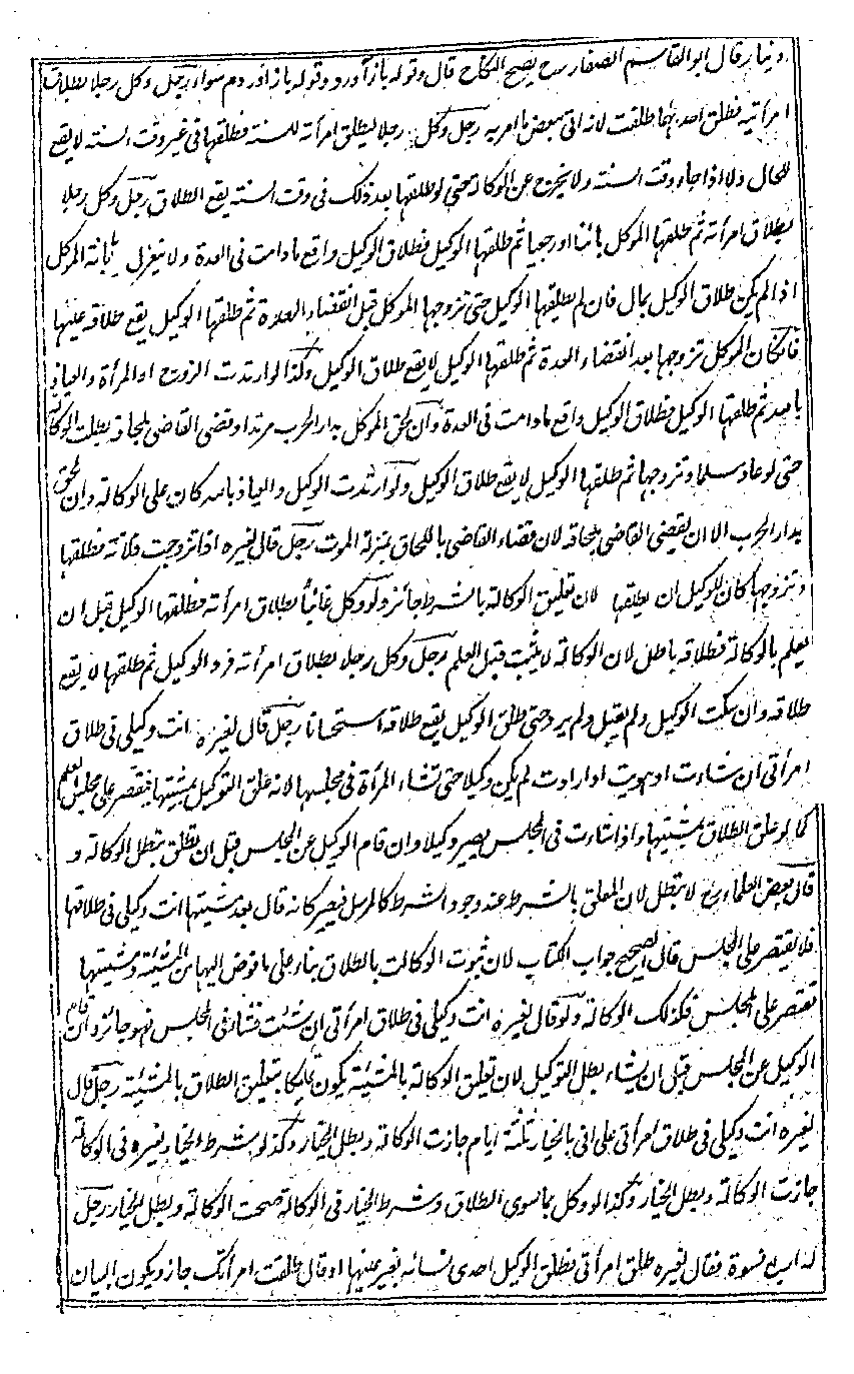 دينار قال ابو القاسم الصفار رح يصح النكاح قال وقوله باز آورد وقوله باز آوردم سواء رجل وكل رجلا بطلاق
امرأتيه فطلق احدىهما طلقت لانه اتى ببعض ما امر به رجل وكل رجلا ليطلق امرأته للسنة فطلقها في غير وقت السنة لا يقع
للحال ولا اذا جاء وقت السنة ولا يخرج عن الوكالة حتى لو طلقها بعد ذلك في وقت السنة يقع الطلاق رجل وكل رجلا
بطلاق امرأته ثم طلقها الموكل بائنا او رجعيا ثم طلقها الوكيل فطلاق الوكيل واقع ما دامت في العدة ولا ينعزل بابانة الموكل
اذا لم يكن طلاق الوكيل بمال فان لم يطلقها الوكيل حتى تزوجها الموكل قبل انقضاء العدة ثم طلقها الوكيل يقع طلاقه عليها
فان كان الموكل تزوجها بعد انقضاء العدة ثم طلقها الوكيل لا يقع طلاق الوكيل وكذا لو ارتدت الزوج او المرأة والعياذ
بالله ثم طلقها الوكيل فطلاق الوكيل واقع ما دامت في العدة وان لحق الموكل بدار الحرب مرتدا وقضى القاضي بلحاقه بطلت الوكالة
حتى لو عاد مسلما وتزوجها ثم طلقها الوكيل لا يقع طلاق الوكيل ولو ارتدت الوكيل والعياذ بالله كان على الوكالة وان لحق
بدار الحرب الا ان يقضي القاضي بلحاقه لان قضاء القاضي باللحاق بمنزلة الموت رجل قال لغيره اذا تزوجت فلانة فطلقها
وتزوجها كان للوكيل ان يطلقها لان تعليق الوكالة بالشرط جائز ولو وكل غائبا بطلاق امرأته فطلقها الوكيل قبل ان
يعلم بالوكالة فطلاقه باطل لان الوكالة لا يثبت قبل العلم رجل وكل رجلا بطلاق امرأته فرد الوكيل ثم طلقها لا يقع
طلاقه وان سكت الوكيل ولم يقبل ولم يرد حتى طلق الوكيل يقع طلاقه استحسانا رجل قال لغيره انت وكيلي في طلاق
امرأتي ان شاءت او هويت او ارادت لم يكن وكيلا حتى تشاء المرأة في مجلسها لانه علق التوكيل بمشيتها فيقتصر على مجلس العلم
كما لو علق الطلاق بمشيتها واذا شاءت في المجلس يصير وكيلا وان قام الوكيل عن المجلس قبل ان يطلق تبطل الوكالة و
قال بعض العلماء رح لا تبطل لان المعلق بالشرط عند وجود الشرط كالمرسل فيصير كانه قال بعد مشيتها انت وكيلي في طلاقها
فلا يقتصر على المجلس قال الصحيح جواب الكتاب لان ثبوت الوكالة بالطلاق بناء على ما فوض اليها من المشيئة ومشيتها
تقتصر على المجلس فكذلك الوكالة ولو قال لغيره انت وكيلي في طلاق امرأتي ان شئت فشاء في المجلس فهو جائز وان قام
الوكيل عن المجلس قبل ان يشاء بطل التوكيل لان تعليق الوكالة بالمشيئة يكون تمليكا كتعليق الطلاق بالمشيئة رجل قال
لغيره انت وكيلي في طلاق امرأتي على اني بالخيار ثلثة ايام جازت الوكالة وبطل الخيار وكذا لو شرط الخيار لغيره في الوكالة
جازت الوكالة وبطل الخيار وكذا لو وكل بما سوى الطلاق وشرط الخيار في الوكالة صحت الوكالة وبطل الخيار رجل
له اربع نسوة فقال لغيره طلق امرأتي فطلق الوكيل احدى نسائه بغير عينها او قال طلقت امرأتك جاز ويكون البيان